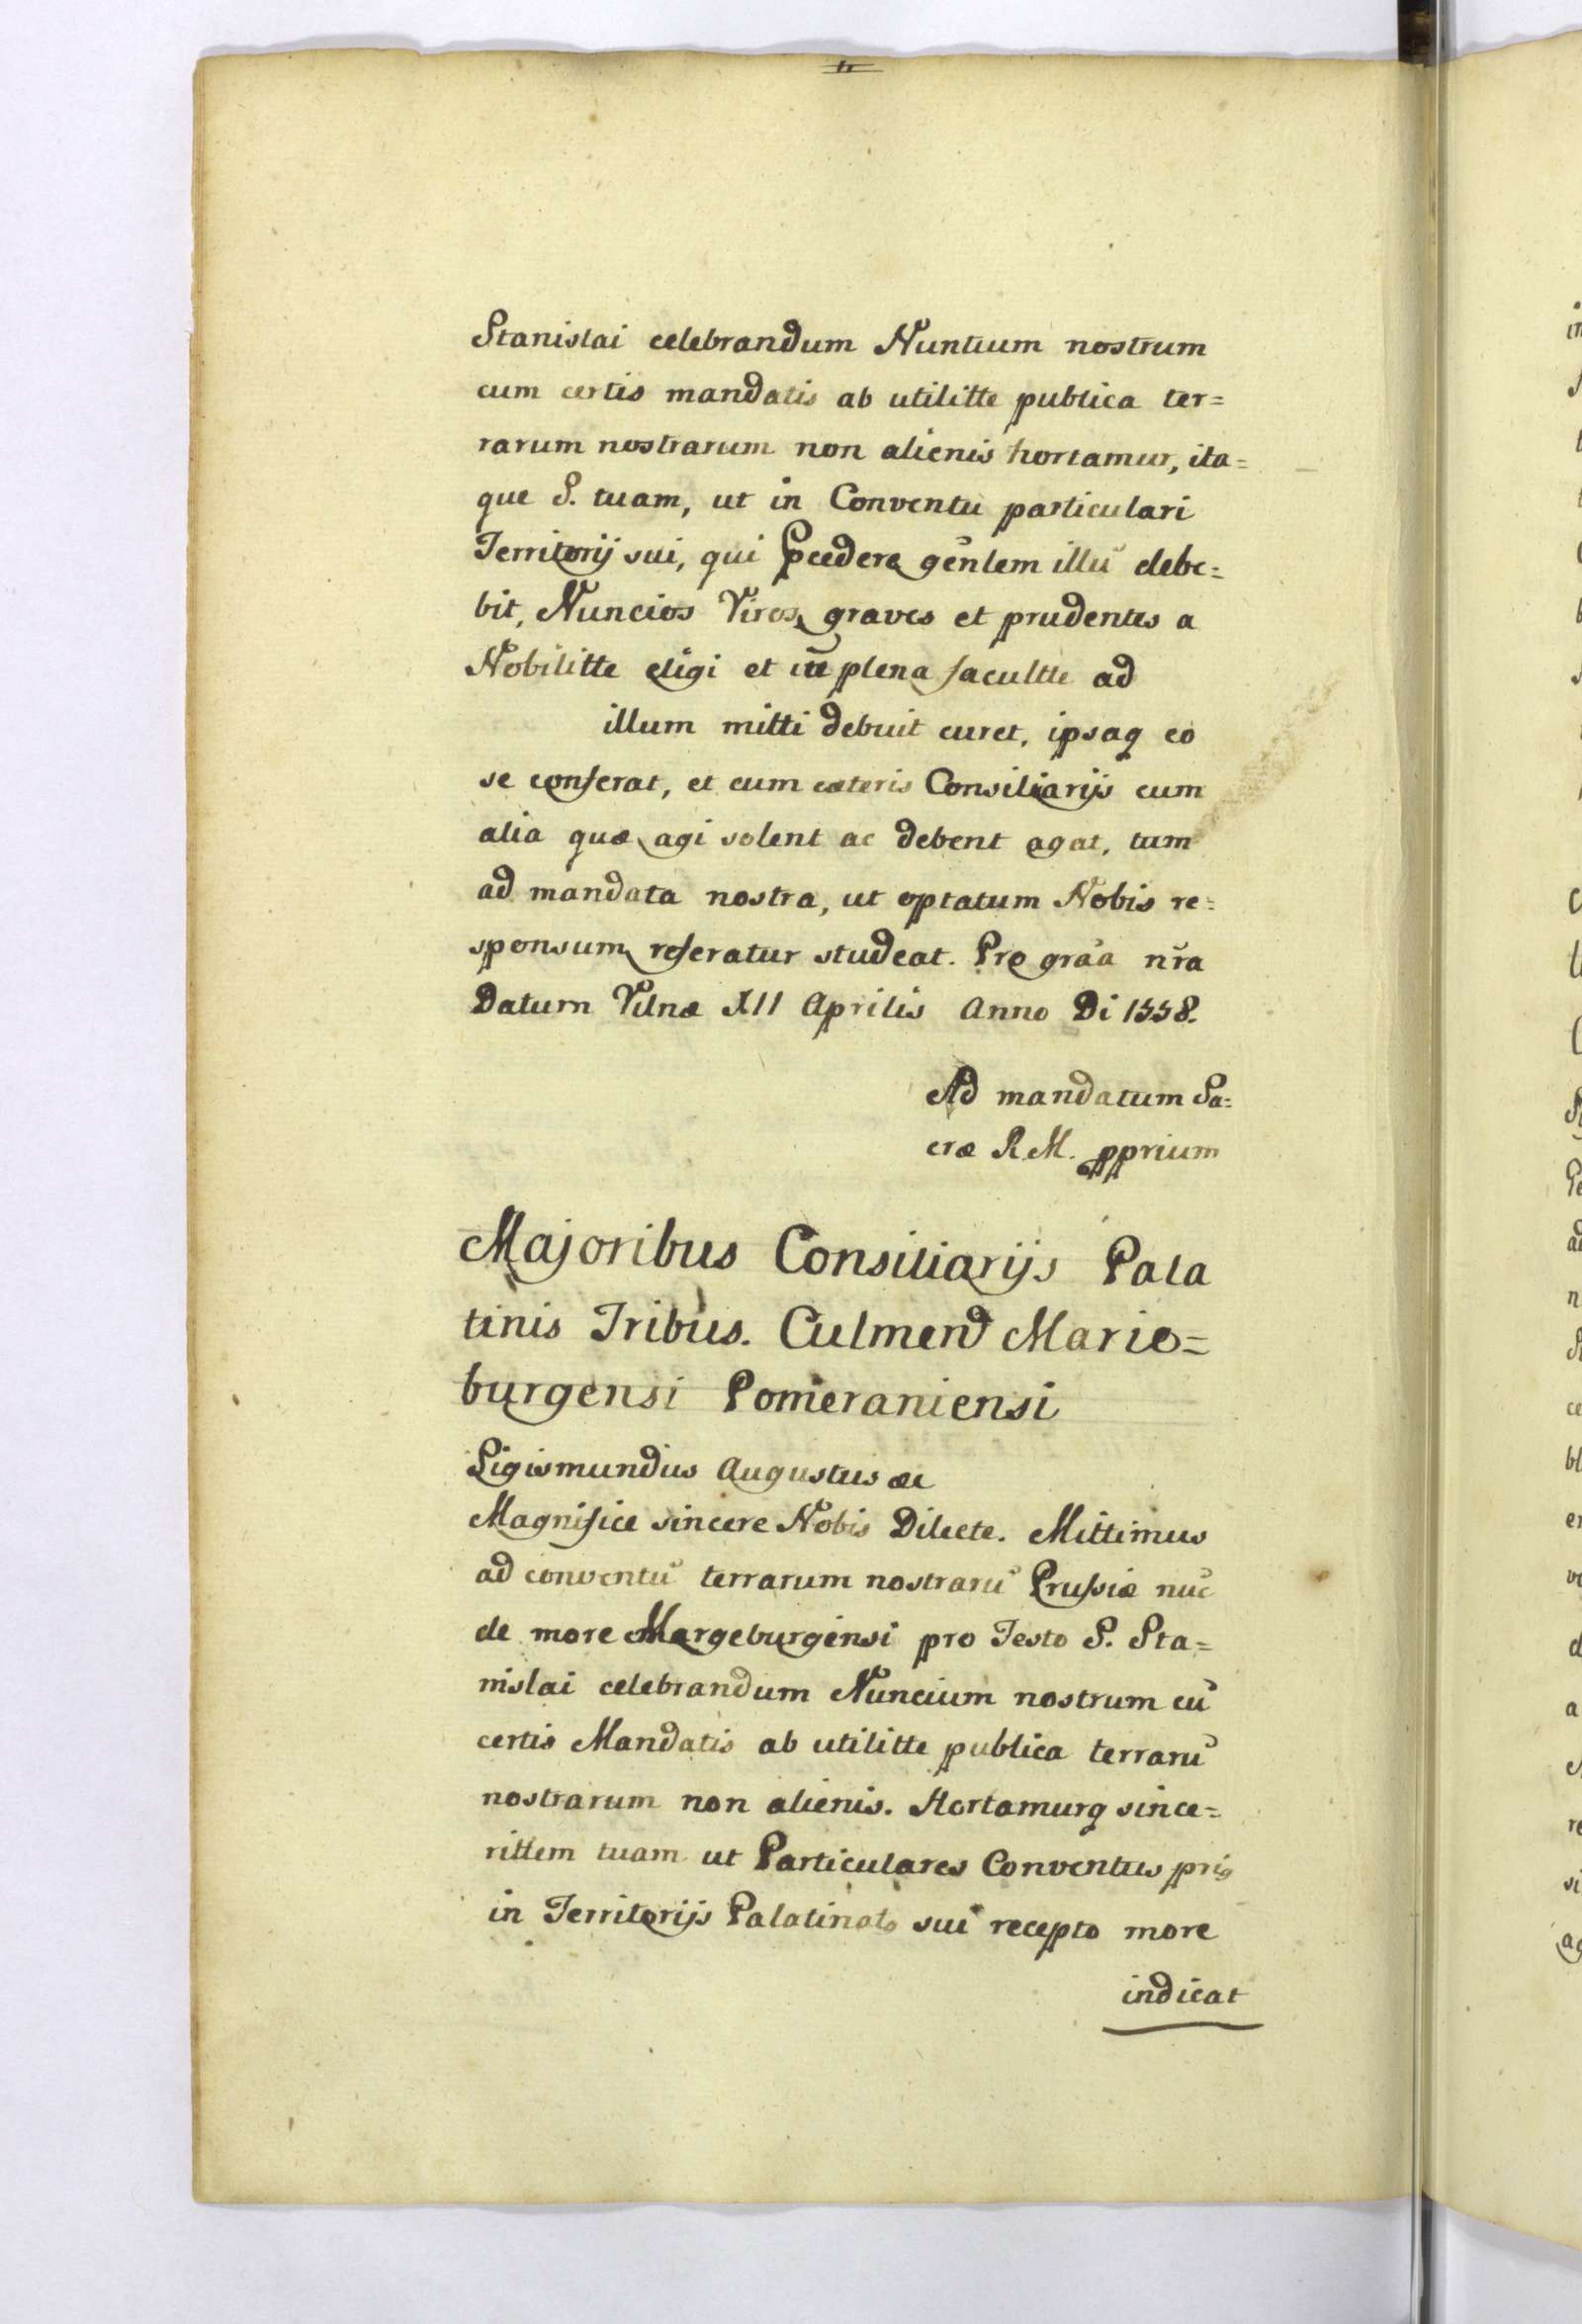 Stanislai celebrandum Nuntium nostrum
cum certis mandatis ab utilitte publica ter=
rarum nostrarum non alienis hortamur, ita=
que S. tuam, ut in Conventu particulari
Territorij sui, qui pcedere gēnlem illū debe=
bit, Nuncios Viros graves et prudentes a
Nobilitte eligi et plena facultte ad
illum mitti debuit curet, ipsaq eo
se conferat, et cum cæteris Consiliarijs cum
alia quæ agi solent ac debent agat, tum
ad mandata nostra, ut optatum Nobis re=
sponsum referatur studeat. Pro grāa nr̄a
Datum Vilnæ XII Aprilis Anno Di 1558.
Ad mandatum Sa=
cræ R.M. pprium
Majoribus Consiliarijs Pala
tinis Tribus. Culmend Marie=
burgensi Pomeraniensi
Sigismundus Augustus
Magnifice sincere Nobis Dilecte. Mittimus
ad conventū terrarum nostrarū Prussiæ nuc̄
de more Margeburgensi pro Festo S. Sta=
nislai celebrandum Nuncium nostrum cū
certis Mandatis ab utilitte publica terrarū
nostrarum non alienis. Hortamurq since=
rittem tuam ut Particulares Conventus priq
in Territorijs Palatinats sui recepto more
indicat